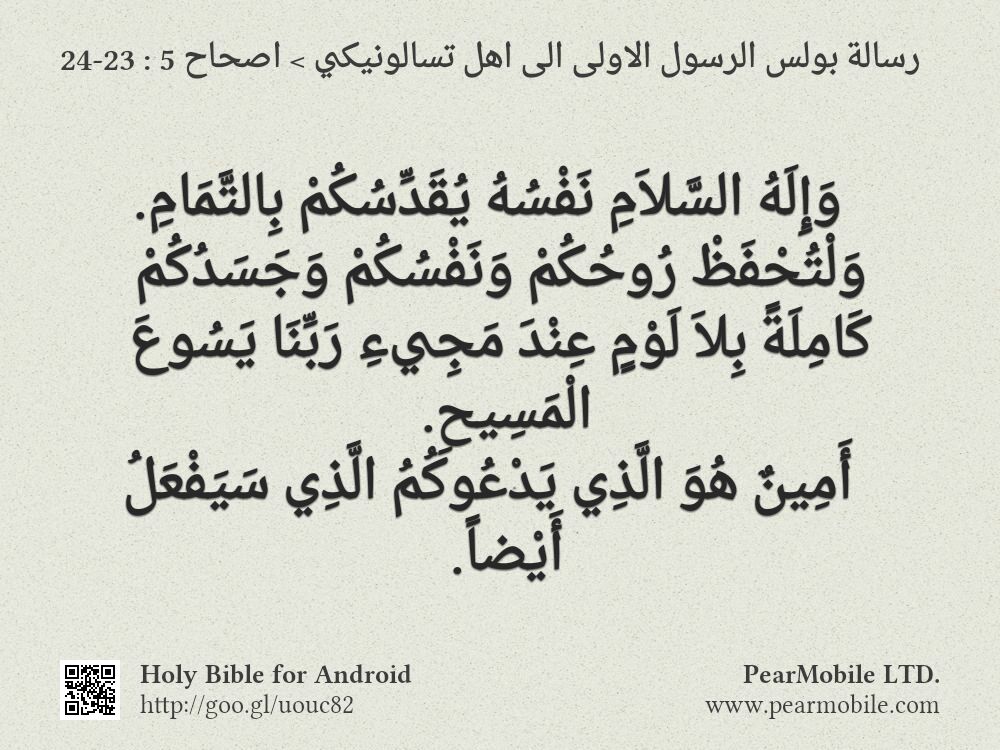 رسالة بولس الرسول الاولى الى اهل تسالونيكي > اصحاح 5 : 23-24
وَإِلَهُ السَّلاَمِ نَفْسُهُ يُقَدِّسُكُمْ بِالتَّمَامِ.
وَلْتُحْفَظْ رُوحُكُمْ وَنَفْسُكُمْ وَجَسَدُكُمْ
كَامِلَةً بِلاَ لَوْمٍ عِنْدَ مَجِيءِ رَبِّنَا يَسُوعَ
الْمَسِيحِ.
أَمِينٌ هُوَ الَّذِي يَدْعُوكُمُ الَّذِي سَيَفْعَلُ
أَيْضاً.
Holy Bible for Android
http://goo.gl/uouc82
PearMobile LTD.
www.pearmobile.com